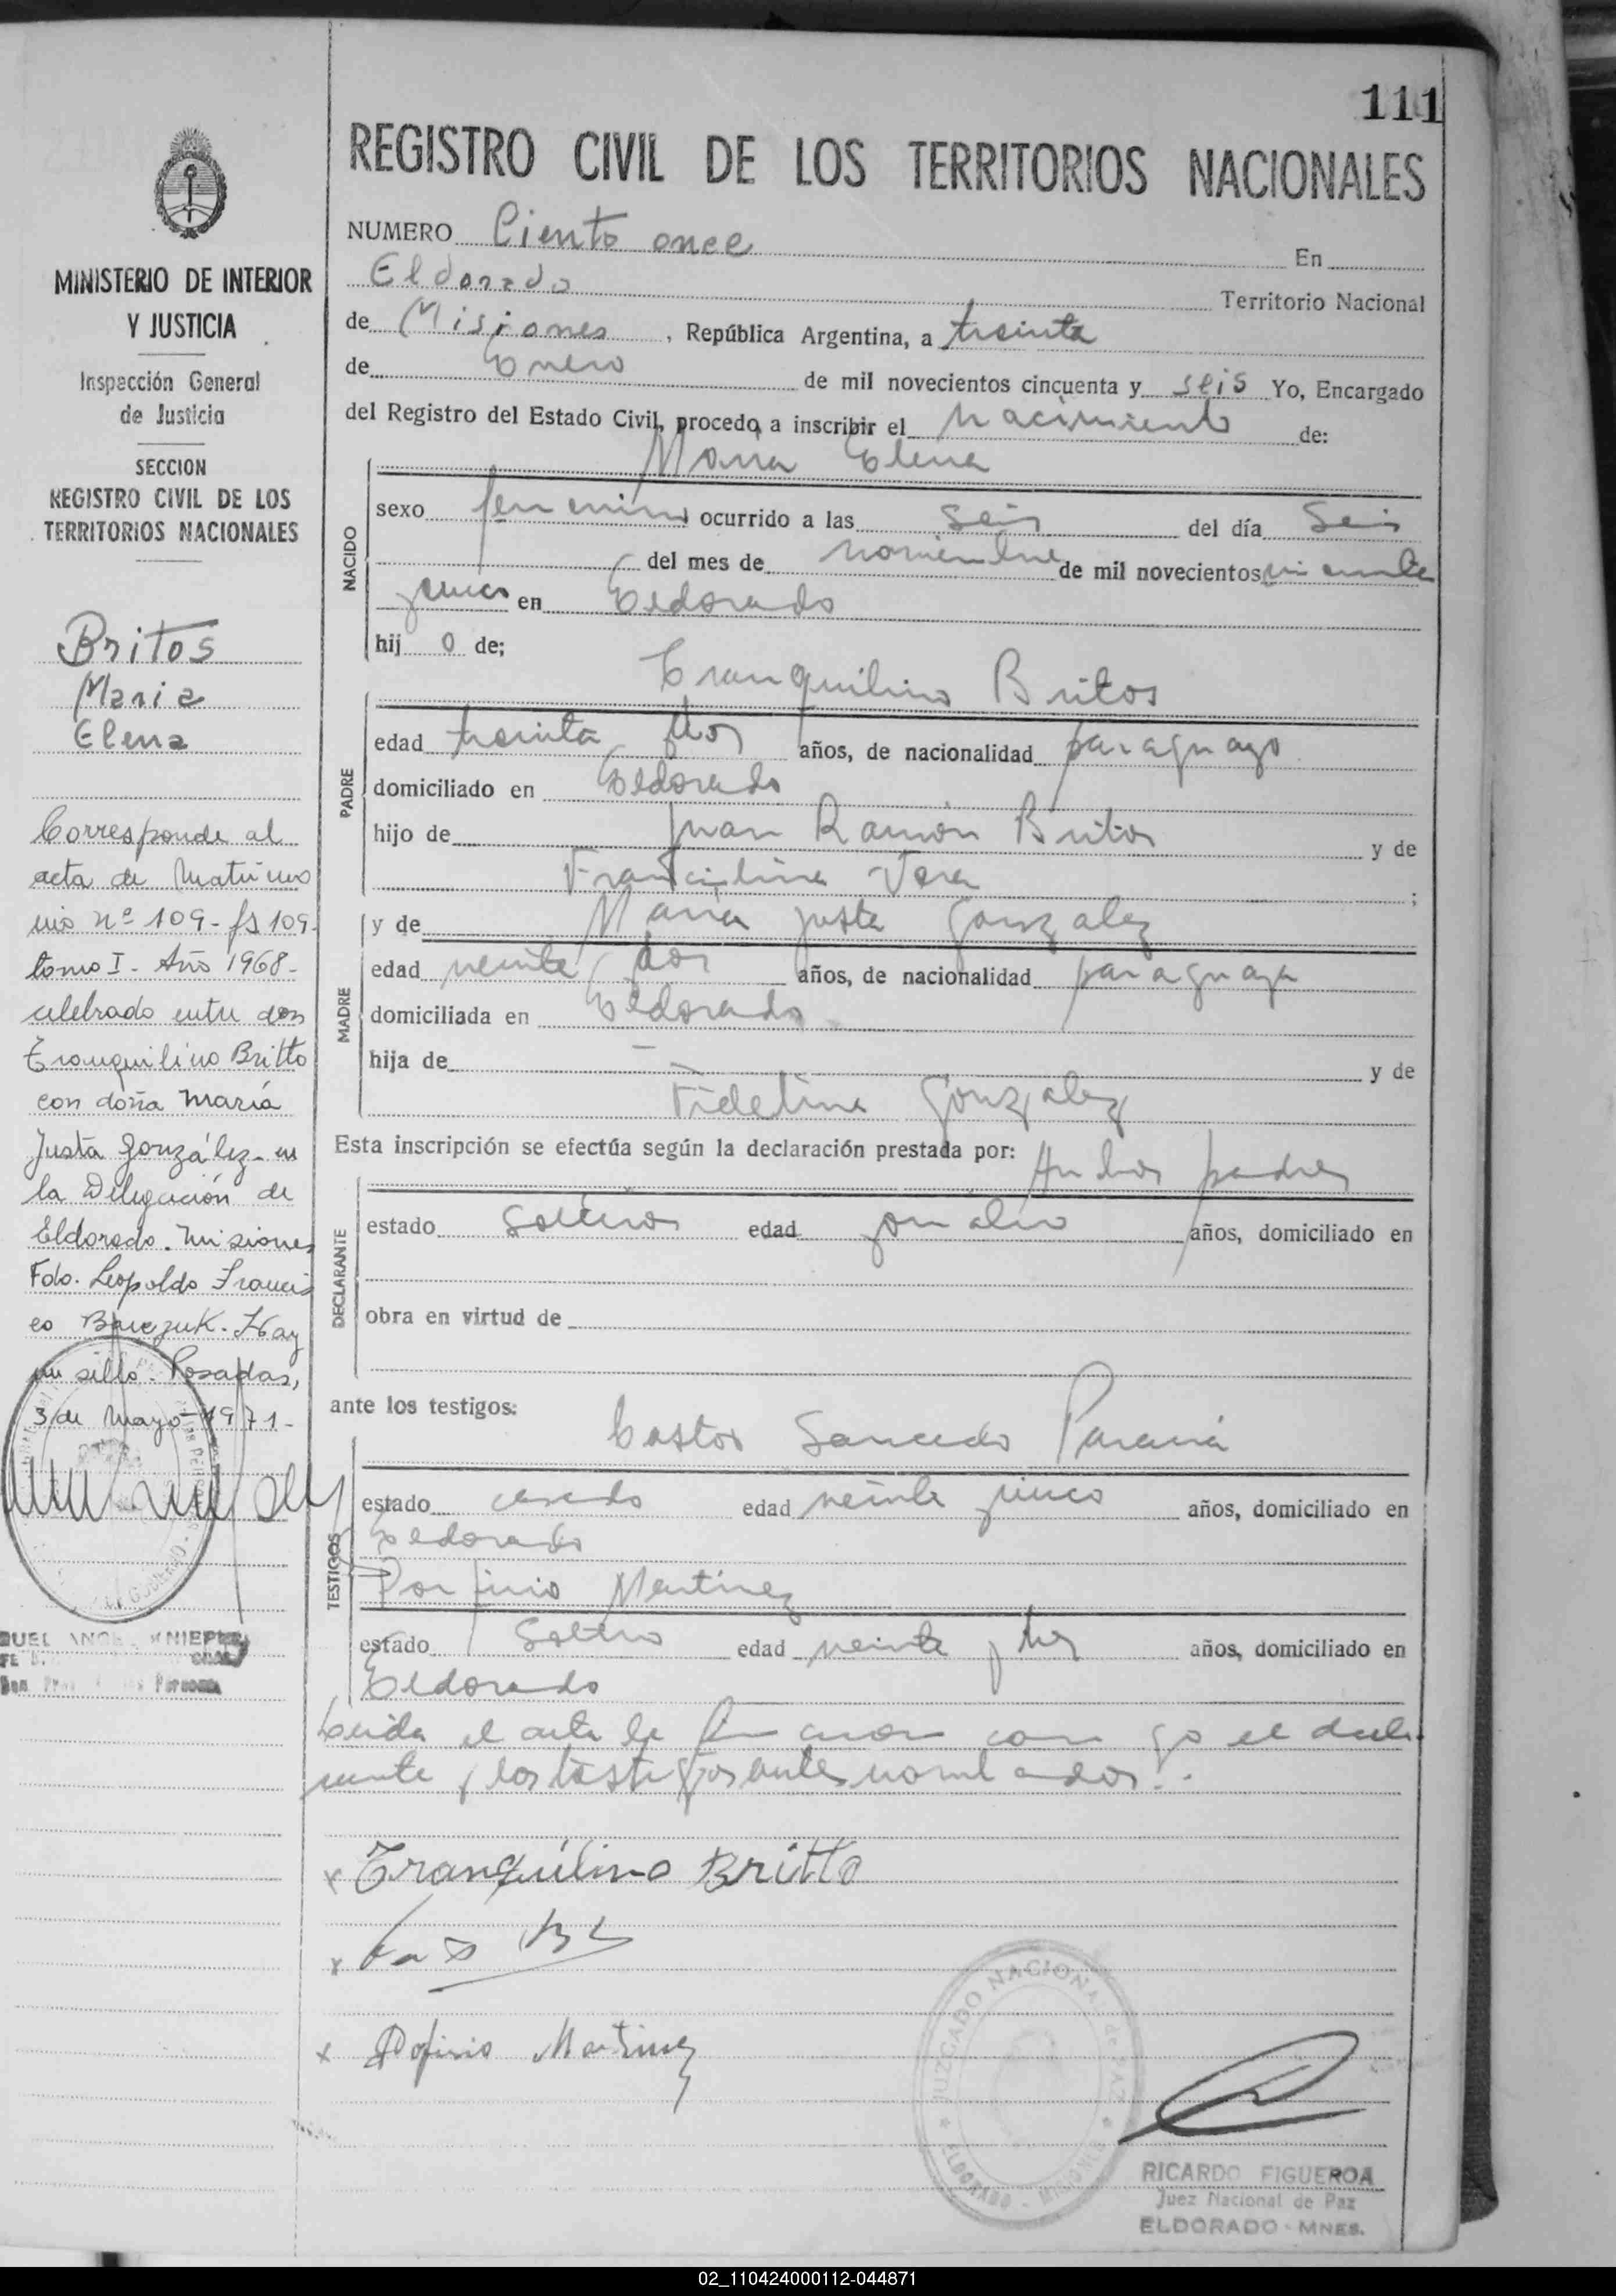 111
REGISTRO CIVIL DE LOS TERRITORIOS NACIONALES
MINISTERIO DE INTERIOR
Y JUSTICIA
Inspección General
de Justicia
SECCION
REGISTRO CIVIL DE LOS
TERRITORIOS NACIONALES
Britos
Maria
Elena
Corresponde al
acta de Matrimo
nio nº 109 - fs 109
tomo I - Año 1968 -
celebrado entre don
Tranquilino Britto
con doña María
Justa González - en
la Delegación de
Eldorado. Misiones
Fdo. Leopoldo Francis
co Barczuk. Hay
un sello. Posadas,
3 de Mayo - 1971 -
NUMERO Ciento once En
Eldorado Territorio Nacional
de Misiones, República Argentina, a treinta
de Enero de mil novecientos cincuenta y seis Yo, Encargado
del Registro del Estado Civil, procedo a inscribir el nacimiento de:
Maria Elena
NACIDO
sexo femenino ocurrido a las seis del día seis
del mes de noviembre de mil novecientos
en Eldorado
hij o de;
Tranquilino Britos
PADRE
edad treinta y dos años, de nacionalidad paraguayo
domiciliado en Eldorado
hijo de Juan Ramón Britos y de
Vera ;
y de Maria Justa Gonzalez
MADRE
edad veinte y dos años, de nacionalidad paraguaya
domiciliada en Eldorado
hija de — y de
Fidelina Gonzalez
Esta inscripción se efectúa según la declaración prestada por: Ambos padres
DECLARANTE
estado solteros edad años, domiciliado en
obra en virtud de
ante los testigos:
Castor Paraná
TESTIGOS
estado casado edad veinte y cinco años, domiciliado en
Eldorado
Porfirio Martinez
estado Soltero edad veinte y tres años, domiciliado en
Eldorado
Leida el acta la firmaron con go el decla
rante y los testigos antes nombrados.
x Tranquilino Britto
x
x Porfirio Martinez
JUZGADO NACIONAL de PAZ
ELDORADO - MISIONES
RICARDO FIGUEROA
Juez Nacional de Paz
ELDORADO - MNES.
02_110424000112-044871